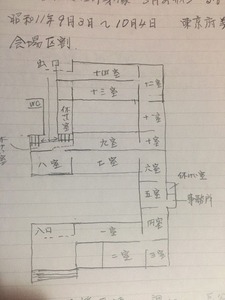 昭和11年9月3日〜10月4日 東京府
会場区割.
出口
十四室
十三室
十二室
WC
休ケイ室
十一室
九室
十室
八室
七室
六室
休ケイ室
五室
事務所
四室
入口
一室
二室
三室